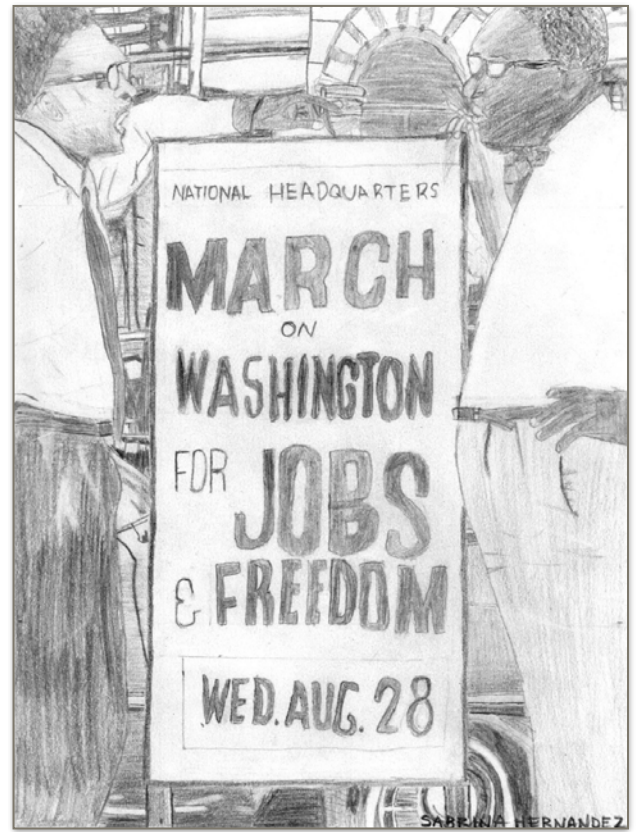 NATIONAL HEADQUARTERS
MARCH
ON
WASHINGTON
FOR JOBS
& FREEDOM
WED. AUG. 28
SABRINA HERNANDEZ